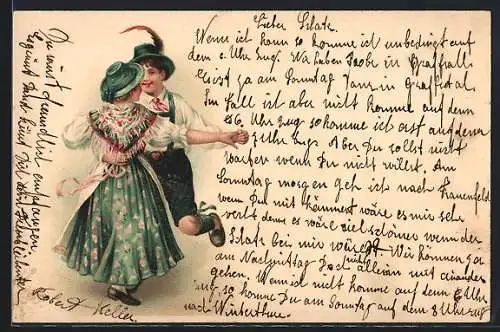 Lieber Schatz.
Wenn ich kann so komme ich unbedingt auf
dem 6 Uhr Zug.
Es ist ja am Sonntag Tanz in
Im Fall ich aber nicht komme auf den
6 Uhr Zug so komme ich erst auf dem
7 Uhr Zug. Aber Du sollst nicht
warten wenn Du nicht willst. Am
Sonntag morgen geh ich nach Frauenfeld
wenn Du mit kämmest wäre es mir sehr
recht denn es wäre viel schöner wenn der
Schatz bei mir wäre. Wir können ja
am Nachmittag doch nicht allein mit einander
gehen. Wenn ich nicht komme auf den 6 Uhr
zug so komme Du am Sonntag auf dem 8 Uhr zug
nach Winterthur.
Du wirst freundlich empfangen.
Es grüsst und küsst Dich
Robert Keller